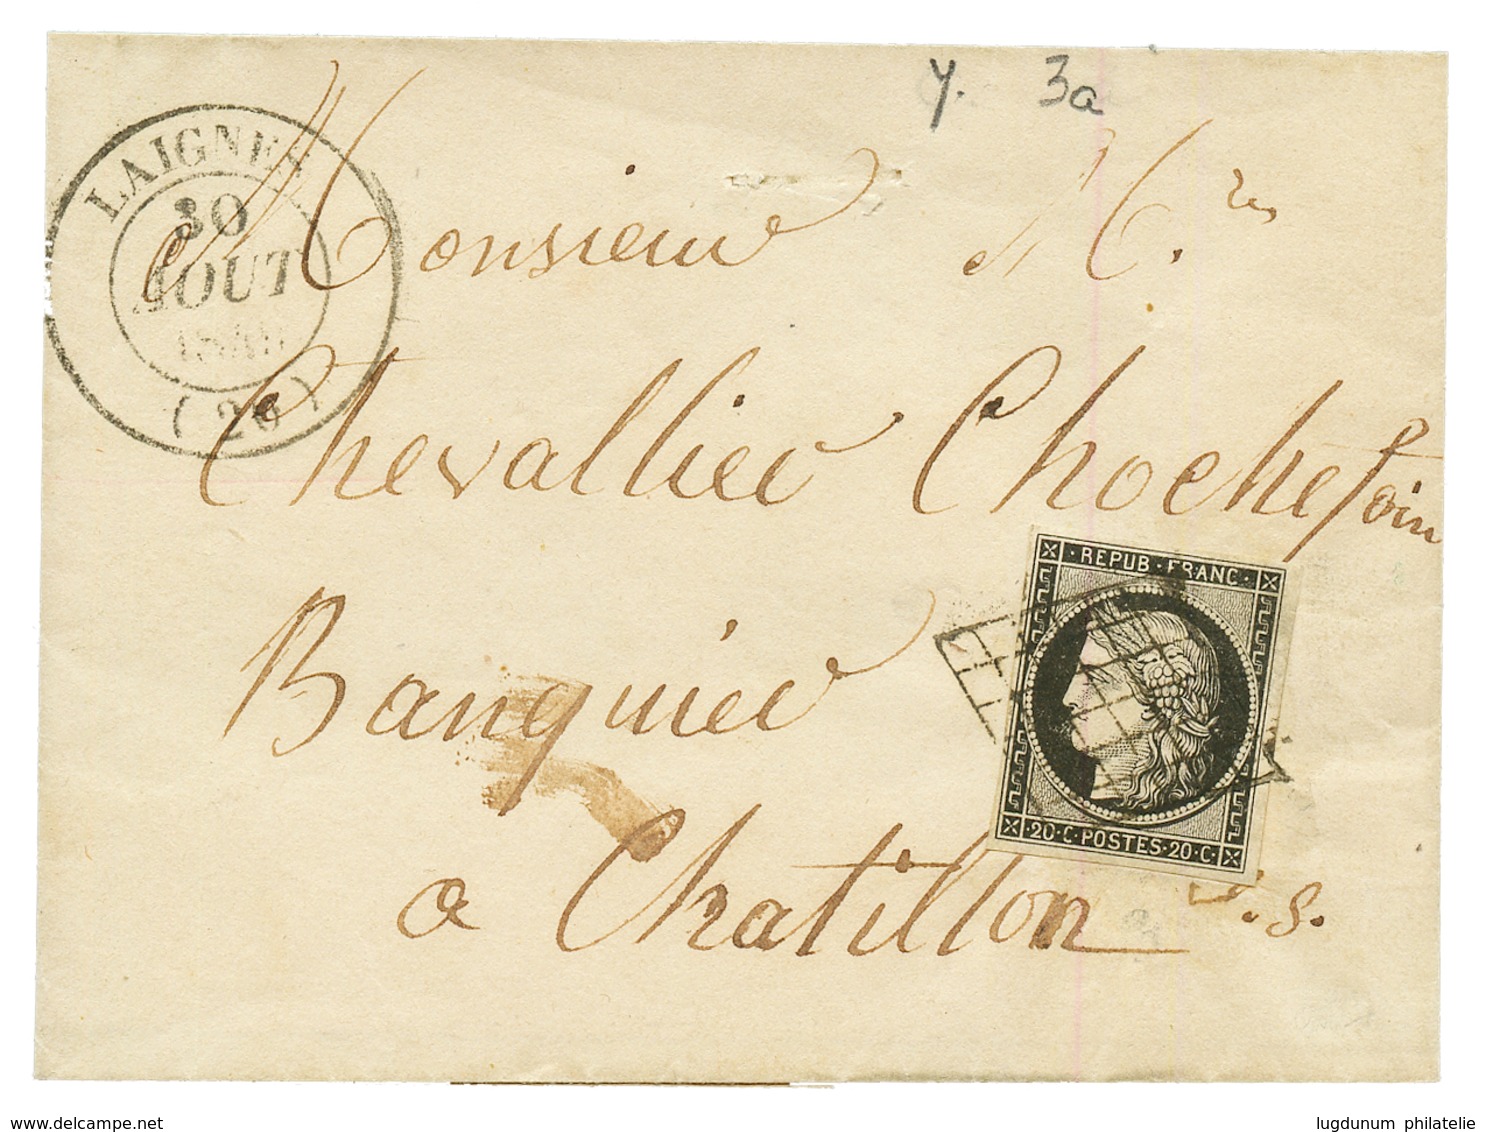 y. 3a
LAIGNES
30
AOUT
(20)
Monsieur M.res
Chevallier Chochefoin
Banquier
a Chatillon .s.
REPUB · FRANC ·
· 20 · C · POSTES · 20 · C ·
delcampe.net
lugdunum philatelie